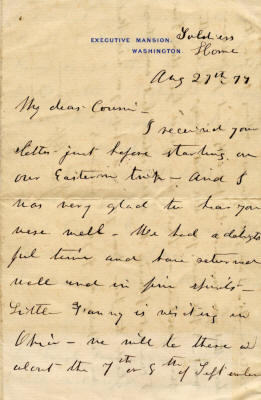 EXECUTIVE MANSION. Soldiers
WASHINGTON. Home
Aug 27th 77
My dear Cousin -
I received your
letter just before starting on
our Eastern trip - And I
was very glad to hear you
were well - We had a delight
ful time and have returned
well and in fine spirits -
Little Fanny is visiting in
Ohio - we will be there
about the 7th or 8th of September